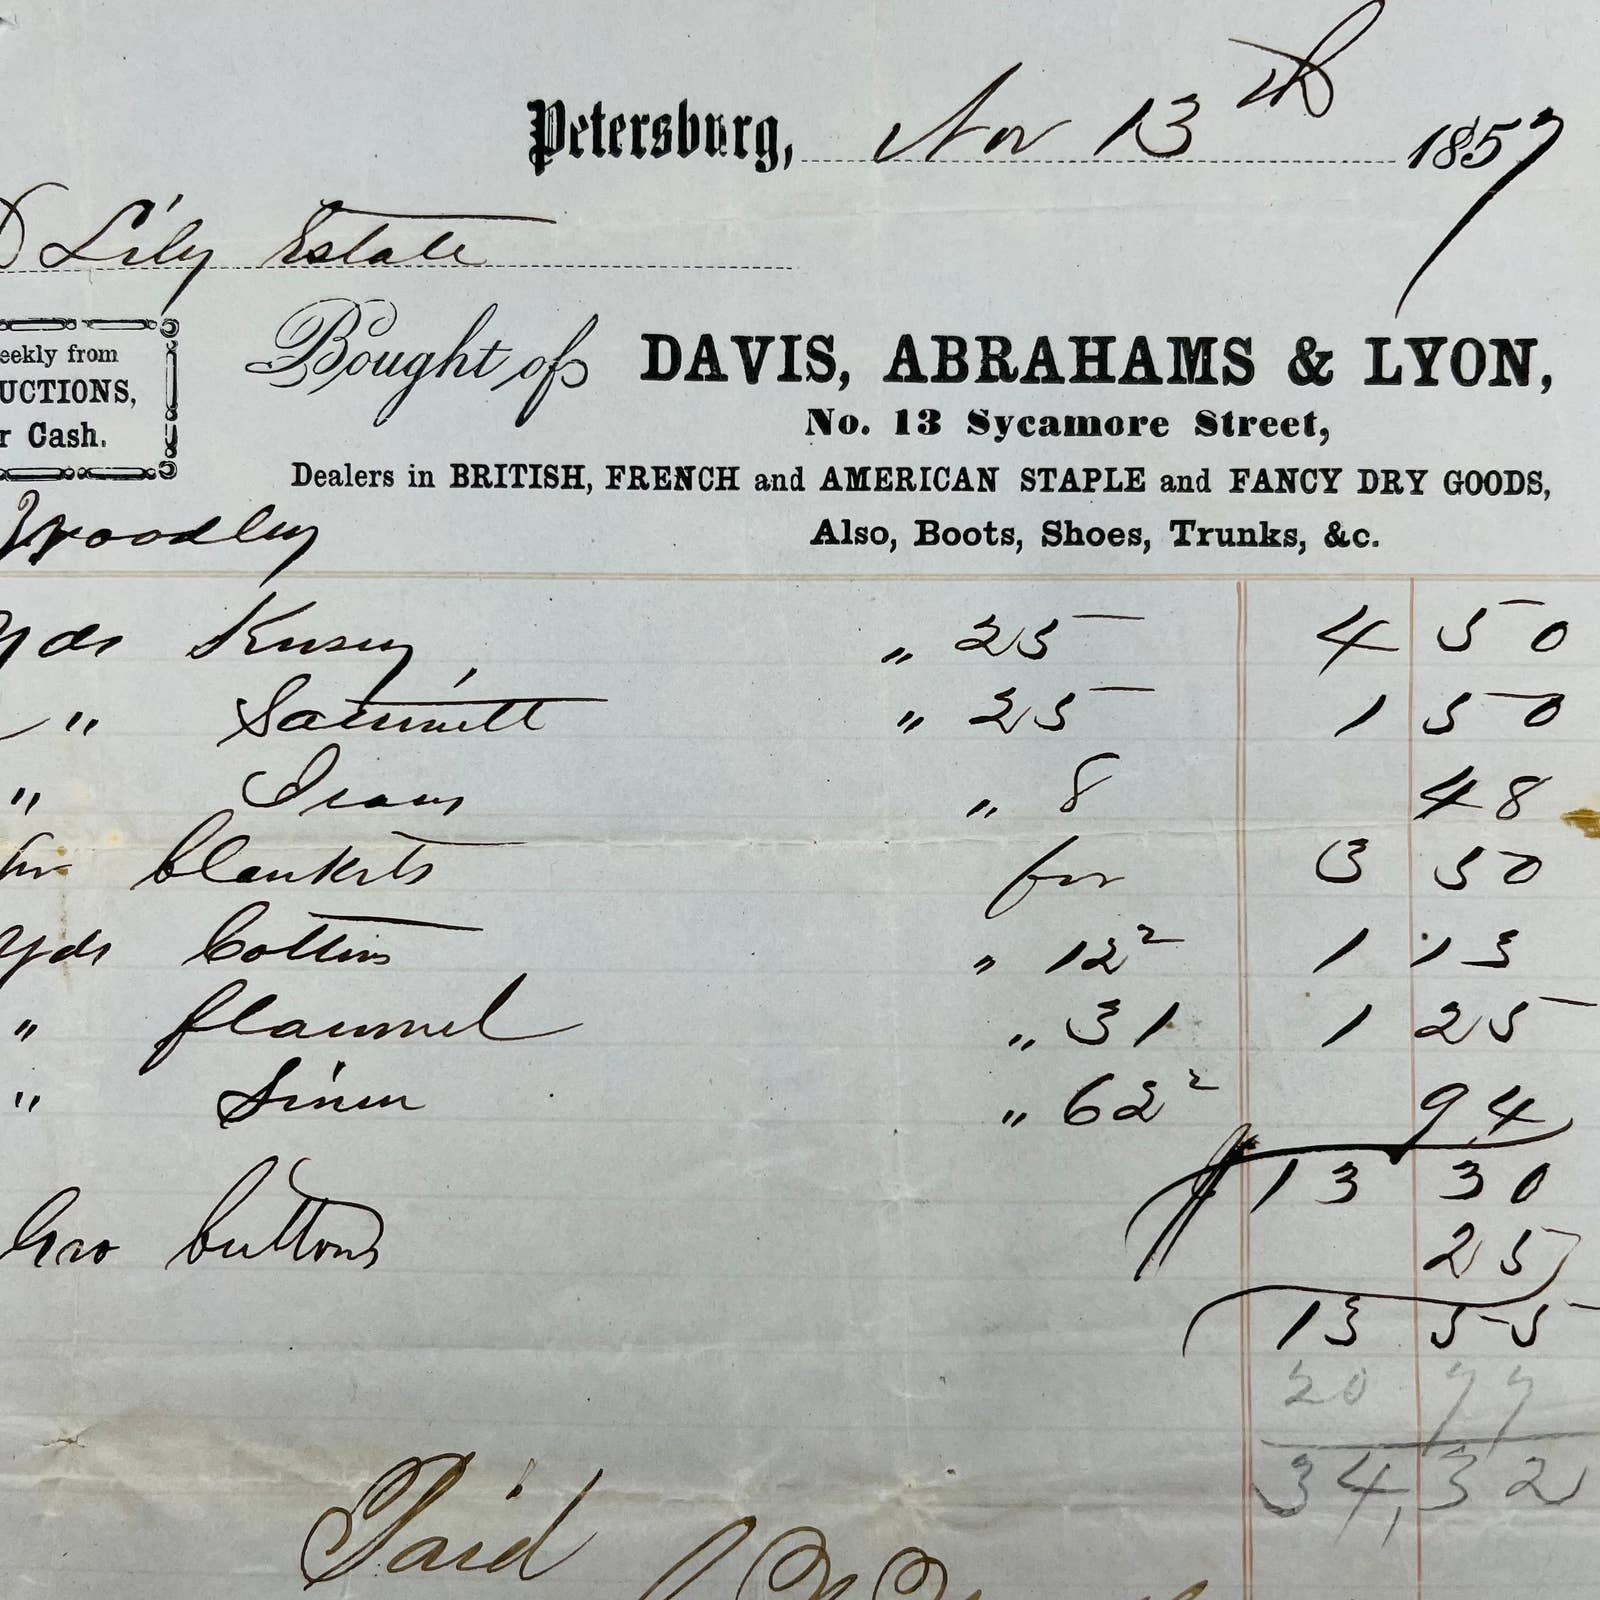 Petersburg, Nov 13th 1857
Lily Estate
Bought of DAVIS, ABRAHAMS & LYON,
eekly from
UCTIONS,
r Cash.
No. 13 Sycamore Street,
Dealers in BRITISH, FRENCH and AMERICAN STAPLE and FANCY DRY GOODS,
Also, Boots, Shoes, Trunks, &c.
Woodley
yds Kersey " 25 4 50
" Sattinett " 25 1 50
" " 8 48
blankets for 3 50
yds Cotton " 12 2 1 13
" flannel " 31 1 25
" Linen " 62 2 94
$13 30
Gro buttons 25
13 55
20 77
34,32
Paid